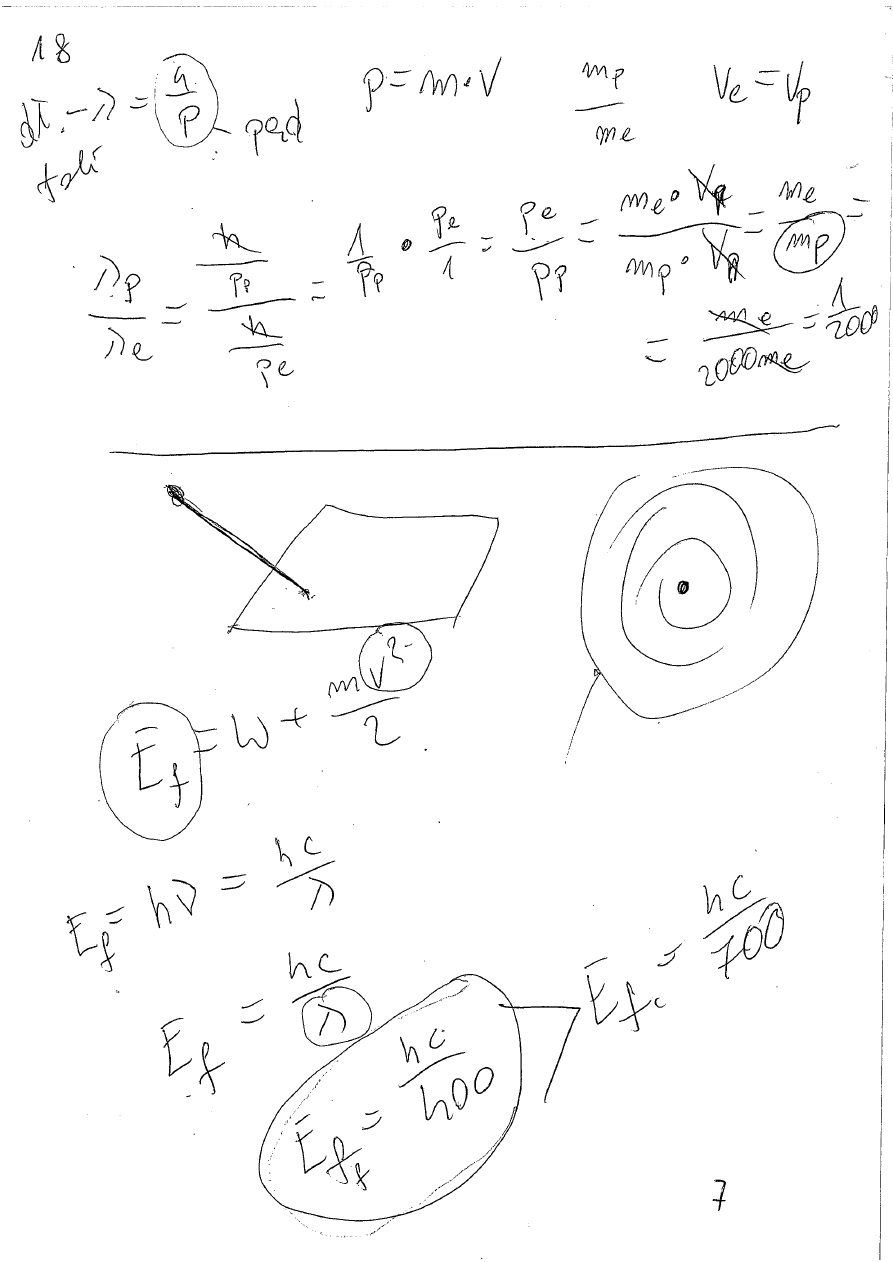 18
λ = h/p p = m·V mp/me Ve = Vp
λp/λe = (h/pp)/(h/pe) = 1/pp · pe/1 = pe/pp = me·Vp/mp·Vp = me/mp =
= me/2000me = 1/2000
Ef = W + mV²/2
Ef = hν = hc/λ
Ef = hc/λ
Ef = hc/700
Eff = hc/400
7